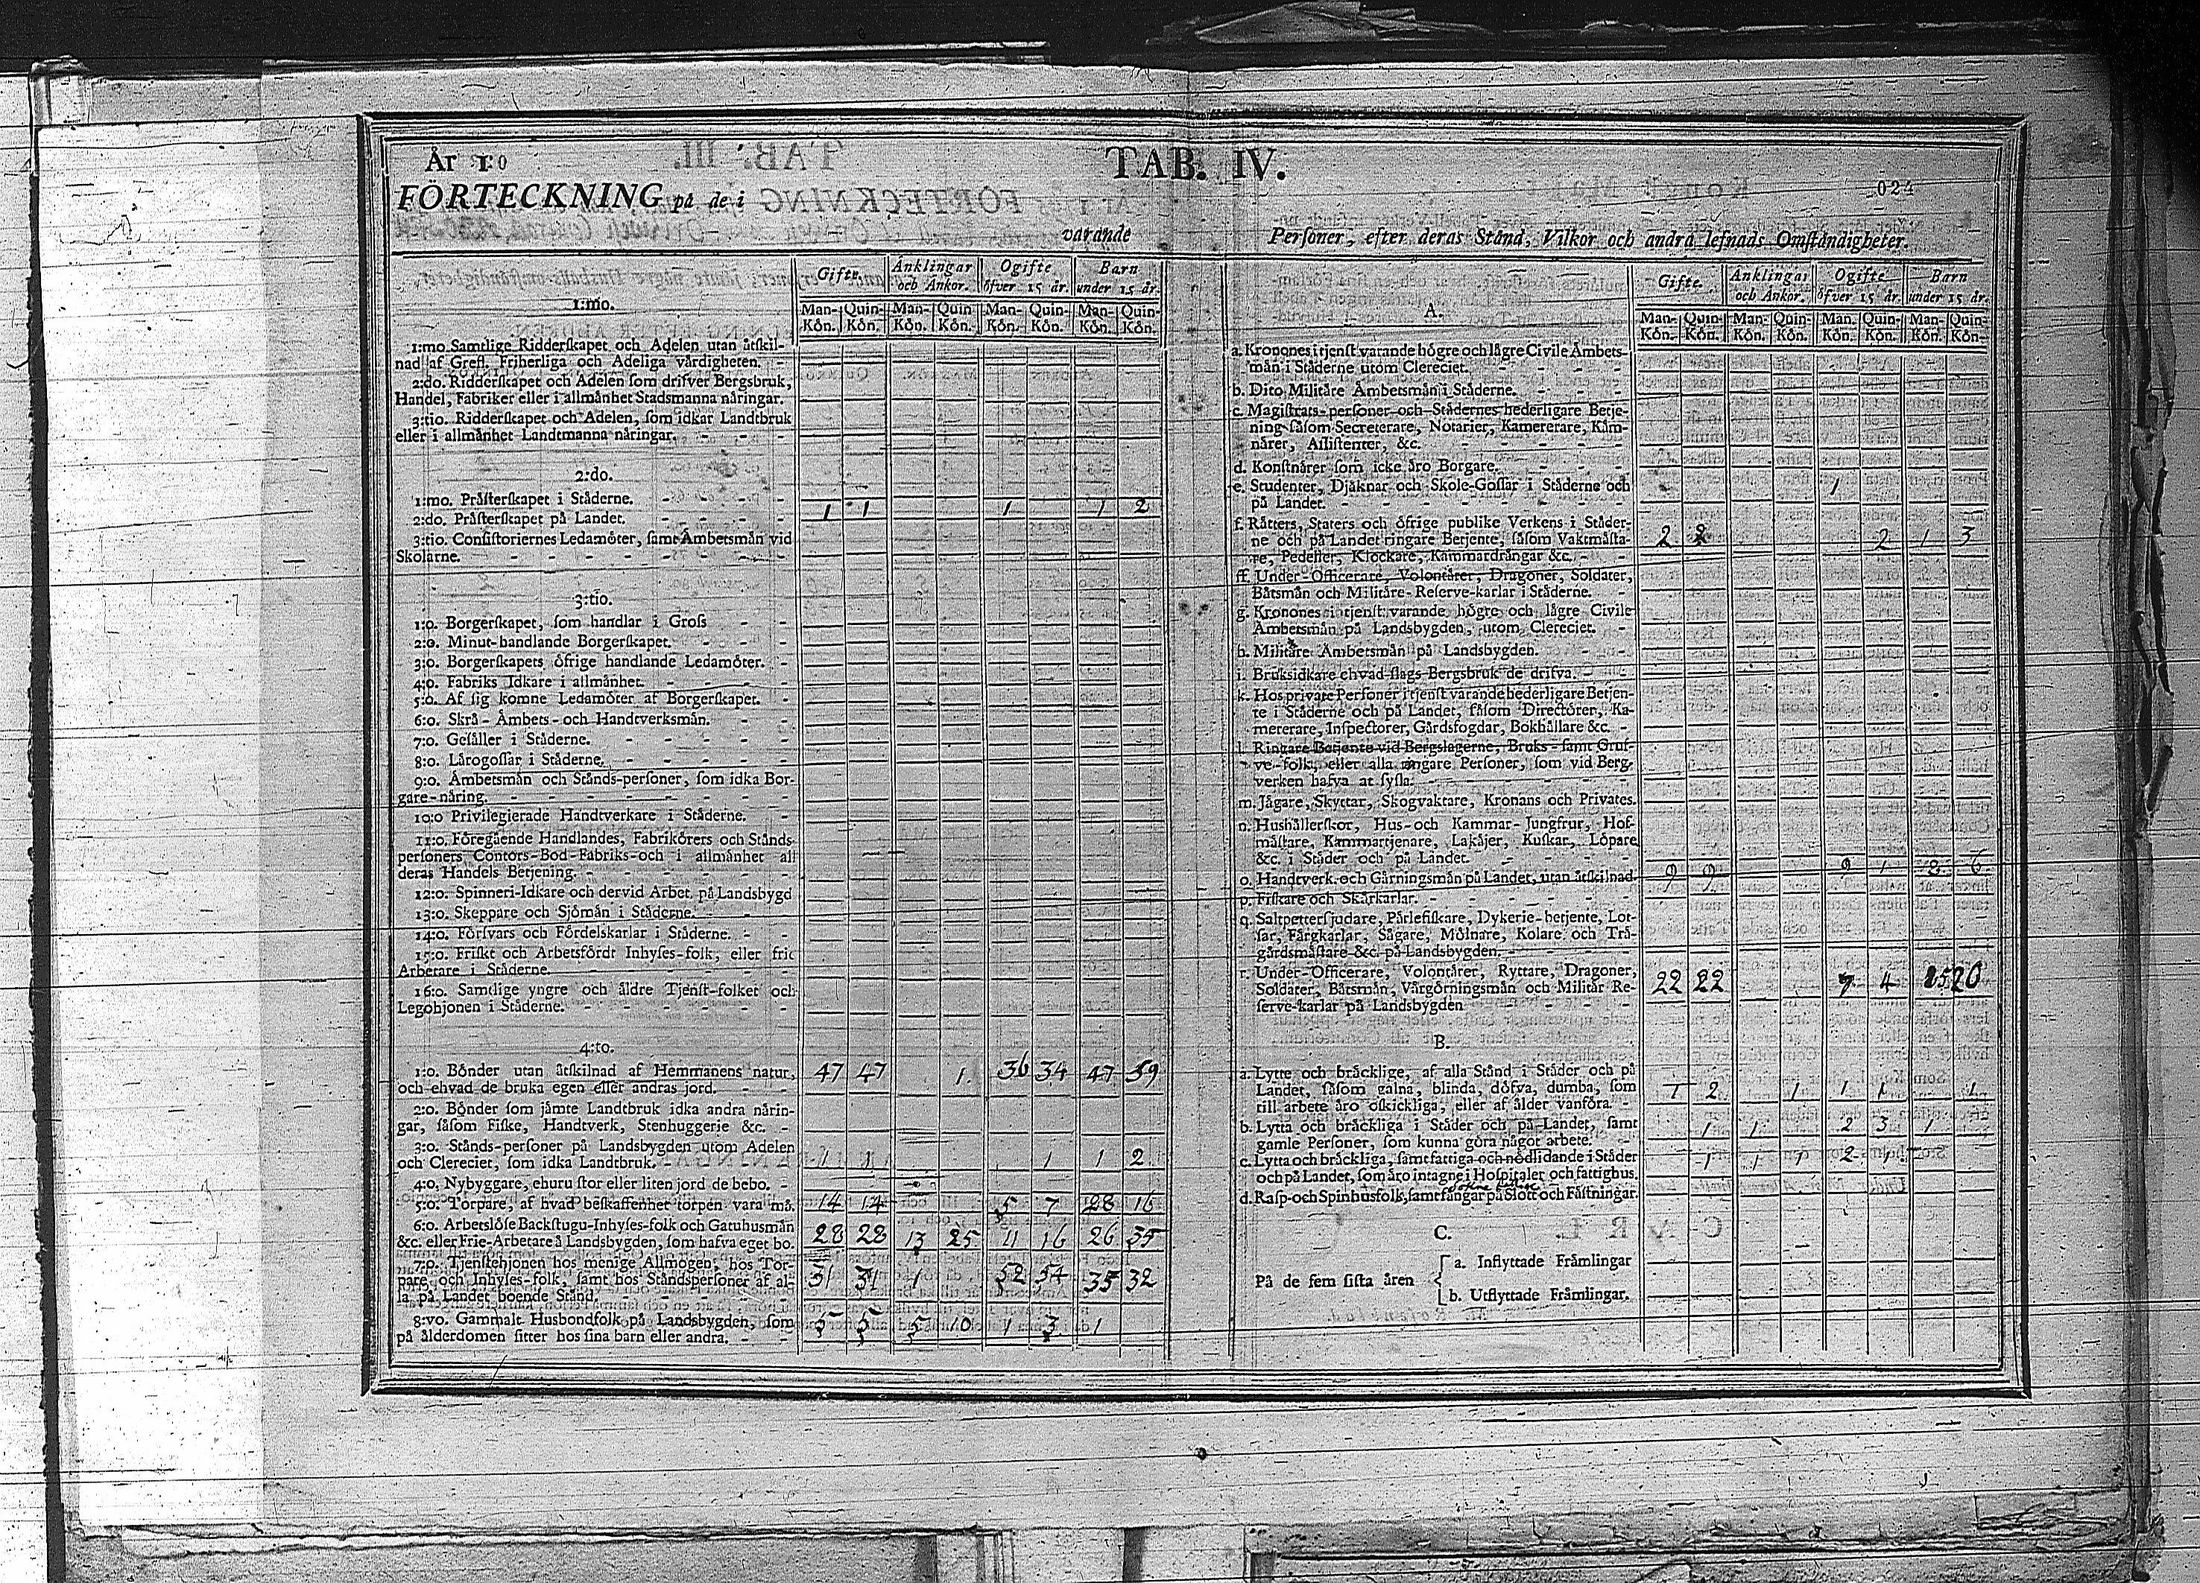 År 1:0
TAB. IV.
024
FÖRTECKNING på de i
varande
Personer, efter deras Stånd, Vilkor och andra lefnads Omståndigheter.
Gifte. Ånklingar och Ånkor. Ogifte öfver 15 år. Barn under 15 år.
Man-Kön. Quin-Kön. Man-Kön. Quin-Kön. Man-Kön. Quin-Kön. Man-Kön. Quin-Kön.
1:mo.
1:mo Samtlige Ridderskapet och Adelen utan åtskil-
nad af Grefl. Friherliga och Adeliga vårdigheten.
2:do. Ridderskapet och Adelen som drifver Bergsbruk,
Handel, Fabriker eller i allmånhet Stadsmanna nåringar.
3:tio. Ridderskapet och Adelen, som idkar Landtbruk
eller i allmånhet Landtmanna nåringar.
2:do.
1:mo. Pråsterskapet i Ståderne.
2:do. Pråsterskapet på Landet. 1 1 1 1 2
3:tio. Consistoriernes Ledamöter, samt Åmbetsmån vid
Skolarne.
3:tio.
1:o. Borgerskapet, som handlar i Gross
2:o. Minut-handlande Borgerskapet.
3:o. Borgerskapets öfrige handlande Ledamöter.
4:o. Fabriks Idkare i allmånhet.
5:o. Af sig komne Ledamöter af Borgerskapet.
6:o. Skrå-Åmbets-och Handtverksmån.
7:o. Gesåller i Ståderne.
8:o. Lårogossar i Ståderne.
9:o. Åmbetsmån och Stånds-personer, som idka Bor-
gare-nåring.
10:o Privilegierade Handtverkare i Ståderne.
11:o. Föregående Handlandes, Fabrikörers och Stånds-
personers Contors-Bod-Fabriks-och i allmånhet all
deras Handels Betjening.
12:o. Spinneri-Idkare och dervid Arbet. på Landsbygd
13:o. Skeppare och Sjömån i Ståderne.
14:o. Försvars och Fördelskarlar i Ståderne.
15:o. Friskt och Arbetsfördt Inhyses-folk, eller frie
Arbetare i Ståderne.
16:o. Samtlige yngre och åldre Tjenst-folket och
Legohjonen i Ståderne.
4:to.
1:o. Bönder utan åtskilnad af Hemmanens natur, 47 47 1 36 34 47 59
och ehvad de bruka egen eller andras jord.
2:o. Bönder som jåmte Landtbruk idka andra nårin-
gar, såsom Fiske, Handtverk, Stenhuggerie &c.
3:o. Stånds-personer på Landsbygden utom Adelen
och Clereciet, som idka Landtbruk. 1 1 1 1 2
4:o. Nybyggare, ehuru stor eller liten jord de bebo.
5:o. Torpare, af hvad beskaffenhet torpen vara må. 14 14 5 7 28 16
6:o. Arbetslöse Backstugu-Inhyses-folk och Gatuhusmån
&c. eller Frie-Arbetare å Landsbygden, som hafva eget bo. 28 28 13 25 11 16 26 35
7:o. Tjenstehjonen hos menige Allmogen, hos Tor-
pare och Inhyses-folk, samt hos Ståndspersoner af al- 31 31 1 52 54 35 32
la på Landet boende Stånd.
8:vo. Gammalt Husbondfolk på Landsbygden, som 5 5 5 10 1 3 1
på ålderdomen sitter hos sina barn eller andra.
Gifte. Ånklingar och Ånkor. Ogifte öfver 15 år. Barn under 15 år.
Man-Kön. Quin-Kön. Man-Kön. Quin-Kön. Man-Kön. Quin-Kön. Man-Kön. Quin-Kön.
A.
a. Kronones i tjenst varande högre och lågre Civile Åmbets-
mån i Ståderne utom Clereciet.
b. Dito Militåre Åmbetsmån i Ståderne.
c. Magistrats-personer och Stådernes hederligare Betje-
ning såsom Secreterare, Notarier, Kamererare, Kåm-
nårer, Assistenter, &c.
d. Konstnårer som icke åro Borgare.
e. Studenter, Djåknar och Skole-Gossar i Ståderne och 1
på Landet.
f. Råtters, Staters och öfrige publike Verkens i Ståder-
ne och på Landet ringare Betjente, såsom Vaktmåsta- 2 2 2 1 3
re, Pedeller, Klockare, Kammardrångar &c.
ff. Under-Officerare, Volontårer, Dragoner, Soldater,
Båtsmån och Militåre-Reserve-karlar i Ståderne.
g. Kronones i tjenst varande högre och lågre Civile
Åmbetsmån på Landsbygden, utom Clereciet.
h. Militåre Åmbetsmån på Landsbygden.
i. Bruksidkare ehvad slags Bergsbruk de drifva.
k. Hos private Personer i tjenst varande hederligare Betjen-
te i Ståderne och på Landet, såsom Directörer, Ka-
mererare, Inspectorer, Gårdsfogdar, Bokhållare &c.
l. Ringare Betjente vid Bergslagerne, Bruks-samt Gruf-
ve-folk, eller alla ringare Personer, som vid Berg-
verken hafva at sysla.
m. Jågare, Skyttar, Skogvaktare, Kronans och Privates.
n. Hushållerskor, Hus-och Kammar-Jungfrur, Hof-
måstare, Kammartjenare, Lakåjer, Kuskar, Löpare
&c. i Ståder och på Landet.
o. Handtverk. och Gårningsmån på Landet, utan åtskilnad 9 9 9 1 8 6
p. Fiskare och Skårkarlar.
q. Saltpettersjudare, Pårlefiskare, Dykerie-betjente, Lot-
sar, Fårgkarlar, Sågare, Mölnare, Kolare och Trå-
gårdsmåstare &c. på Landsbygden.
r. Under-Officerare, Volontårer, Ryttare, Dragoner,
Soldater, Båtsmån, Vårgörningsmån och Militår Re- 22 22 7 4 25 26
serve-karlar på Landsbygden
B.
a. Lytte och bråcklige, af alla Stånd i Ståder och på
Landet, såsom galna, blinda, döfva, dumba, som 1 2 1 1 1 1
till arbete åro oskickliga, eller af ålder vanföra.
b. Lytta och bråckliga i Ståder och på Landet, samt 1 1 2 3 1
gamle Personer, som kunna göra något arbete.
c. Lytta och bråckliga, samt fattiga och nödlidande i Ståder 1 1 1 2 1
och på Landet, som åro intagne i Hospitaler och fattighus.
d. Rasp-och Spinhusfolk, samt fångar på Slott och Fåstningar.
C.
På de fem sista åren
a. Inflyttade Fråmlingar
b. Utflyttade Fråmlingar.